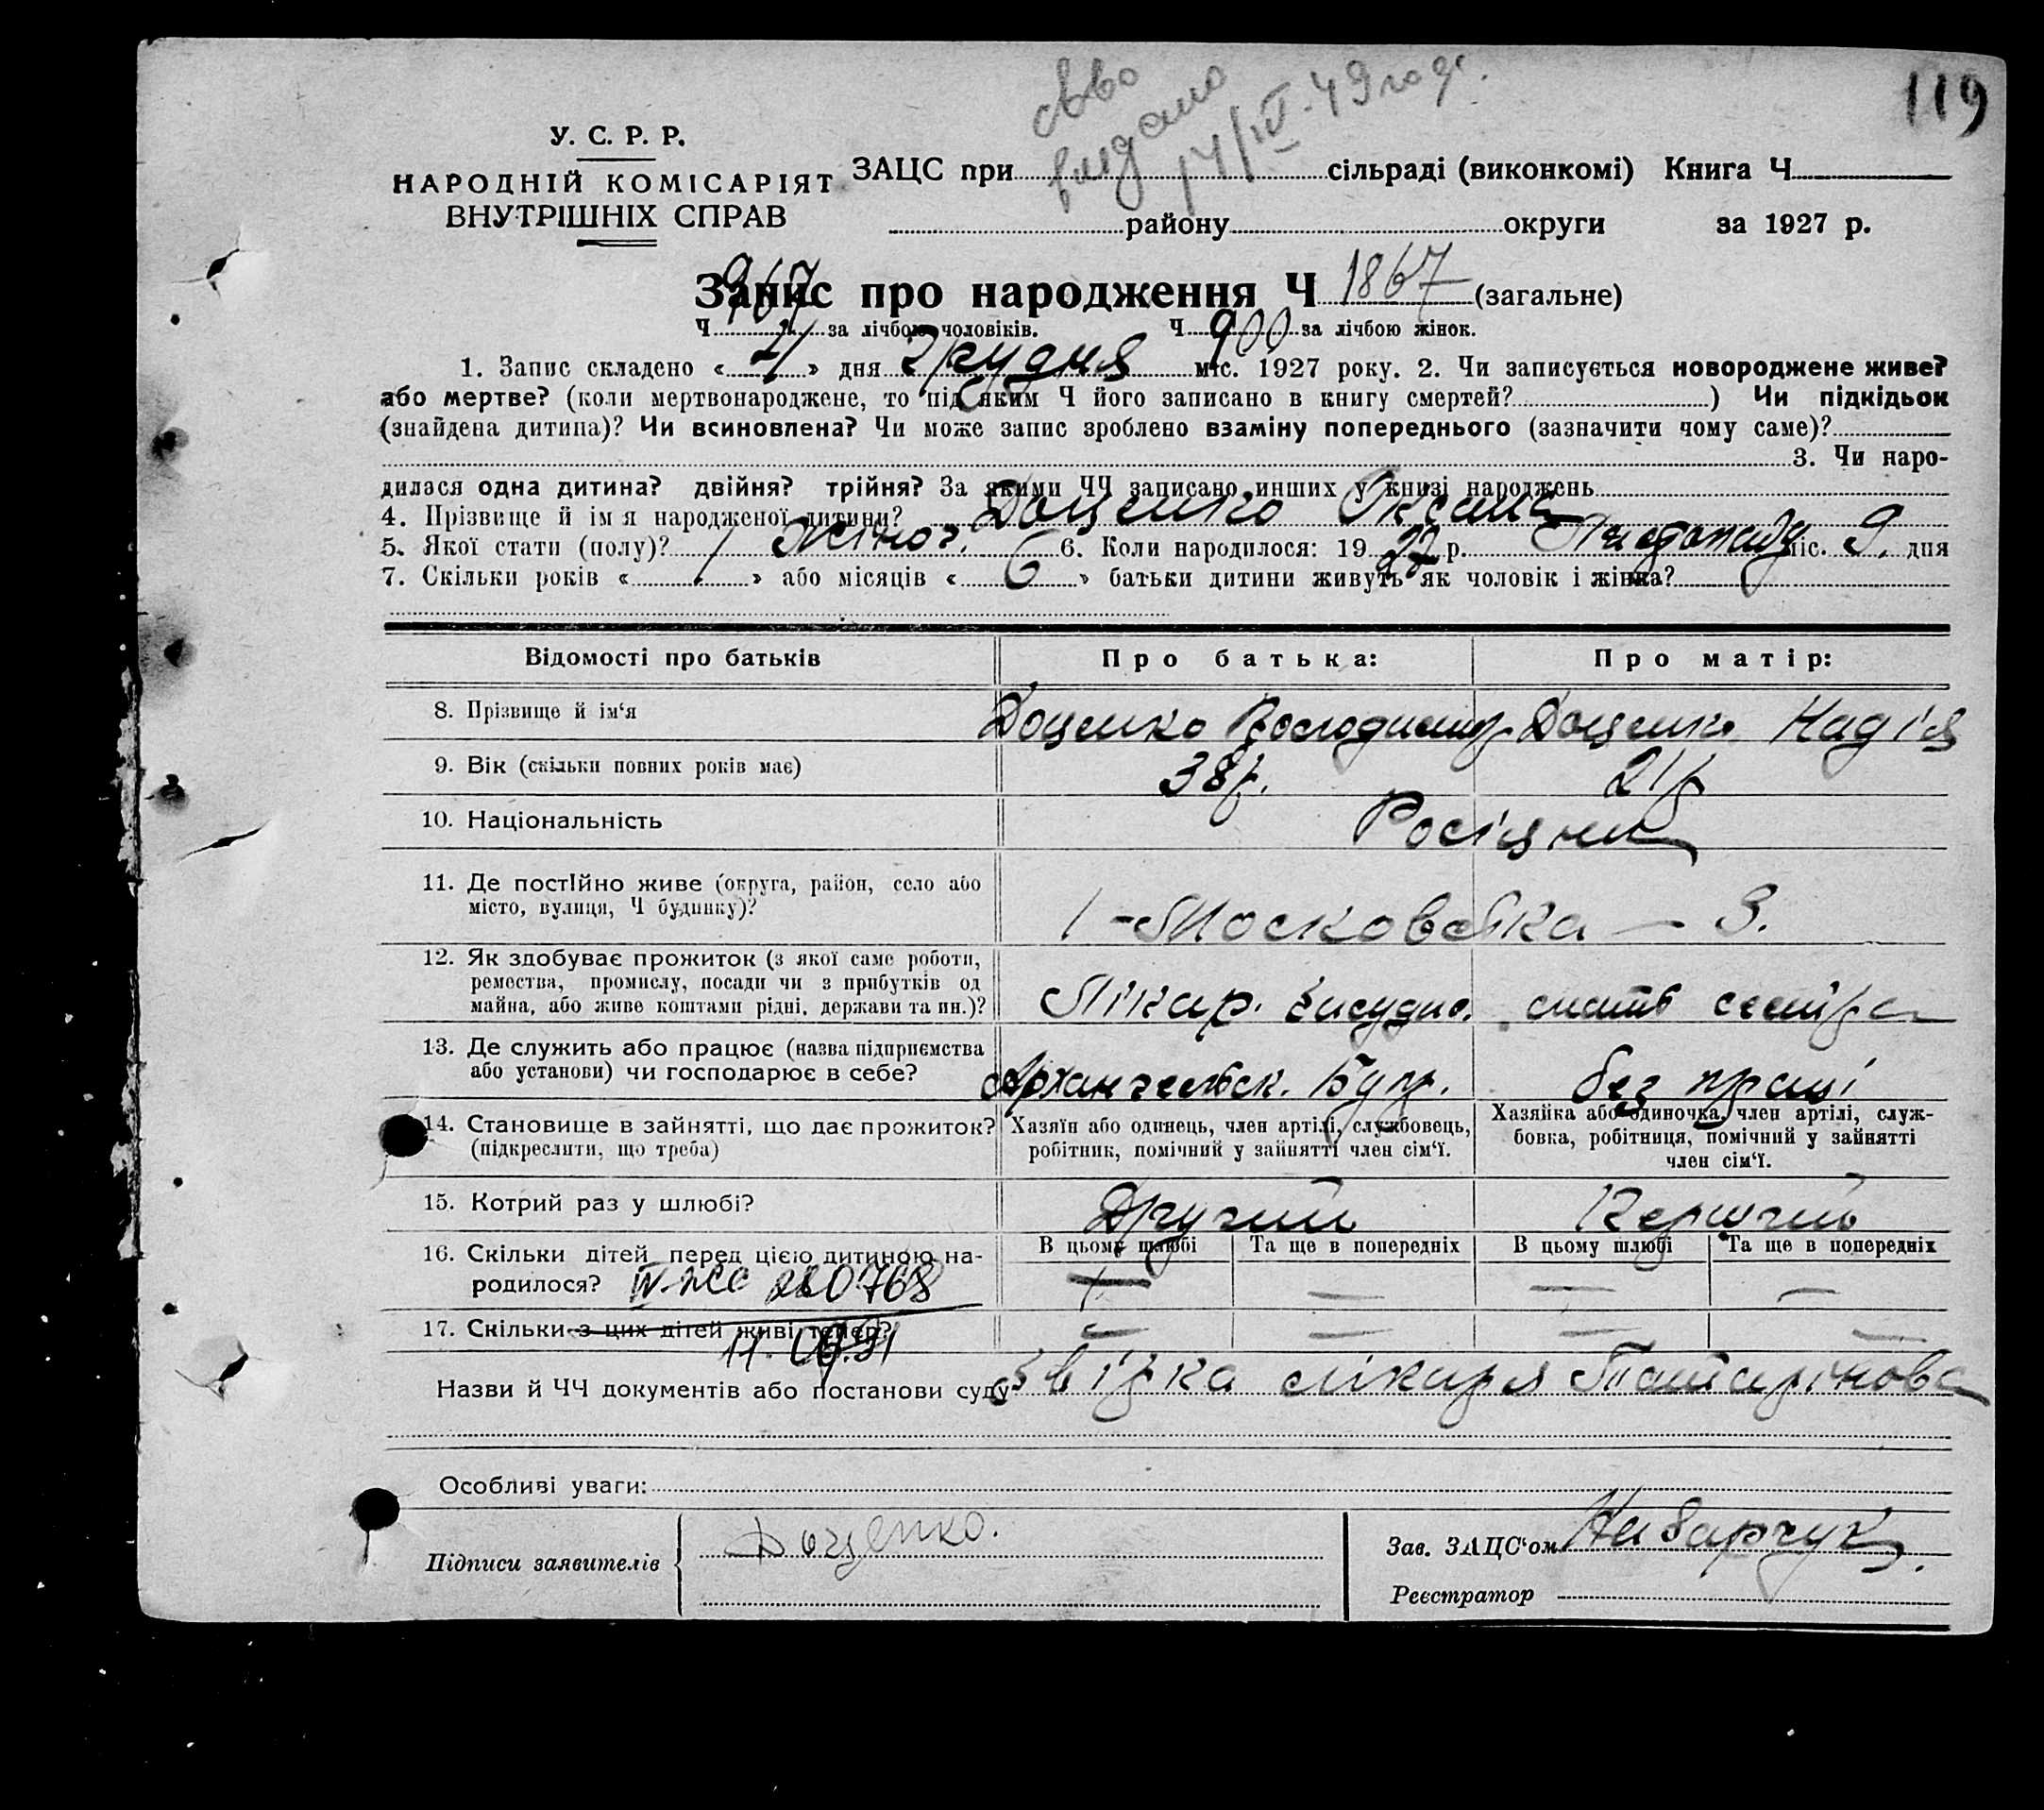 119
видано
У. С. Р. Р.
НАРОДНІЙ КОМІСАРІЯТ
ВНУТРІШНІХ СПРАВ
ЗАЦС при сільраді (виконкомі) Книга Ч
району округи за 1927 р.
Запис про народження Ч 1867 (загальне)
Ч 967 за лічбою чоловіків. Ч 900 за лічбою жінок.
1. Запис складено « » дня Грудня міс. 1927 року. 2. Чи записується новороджене живе?
або мертве? (коли мертвонароджене, то під яким Ч його записано в книгу смертей? ) Чи підкідьок
(знайдена дитина)? Чи всиновлена? Чи може запис зроблено взаміну попереднього (зазначити чому саме)?
3. Чи наро-
дилася одна дитина? двійня? трійня? За якими ЧЧ записано инших у книзі народжень
4. Прізвище й ім я народженої дитини? Доценко Оксана
5. Якої стати (полу)? Жіноч. 6. Коли народилося: 19 27 р. Листопаду міс. 9. дня
7. Скільки років « 1 » або місяців « 6 » батьки дитини живуть як чоловік і жінка?
Відомості про батьків Про батька: Про матір:
8. Прізвище й ім'я Доценко Володимир Доценко Надія
9. Вік (скільки повних років має) 38 р. 21 р
10. Національність Росіяни
11. Де постійно живе (округа, район, село або
місто, вулиця, Ч будинку)? 1-Московська — 3.
12. Як здобуває прожиток (з якої саме роботи,
ремества, промислу, посади чи з прибутків од
майна, або живе коштами рідні, держави та ин.)? Лікар. сестра
13. Де служить або працює (назва підприємства
або установи) чи господарює в себе? Архангельськ. без праці
14. Становище в зайнятті, що дає прожиток?
(підкреслити, що треба)
Хазяїн або одинець, член артілі, службовець,
робітник, помічний у зайнятті член сім'ї.
Хазяйка або одиночка, член артілі, служ-
бовка, робітниця, помічний у зайнятті
член сім'ї.
15. Котрий раз у шлюбі? Другий Перший
16. Скільки дітей перед цією дитиною на-
родилося?
В цьому шлюбі Та ще в попередніх В цьому шлюбі Та ще в попередніх
— — — —
17. Скільки з цих дітей живі тепер? — — — —
Назви й ЧЧ документів або постанови суду лікаря
Особливі уваги:
Підписи заявителів Доценко.
Зав. ЗАЦС'ом
Реєстратор